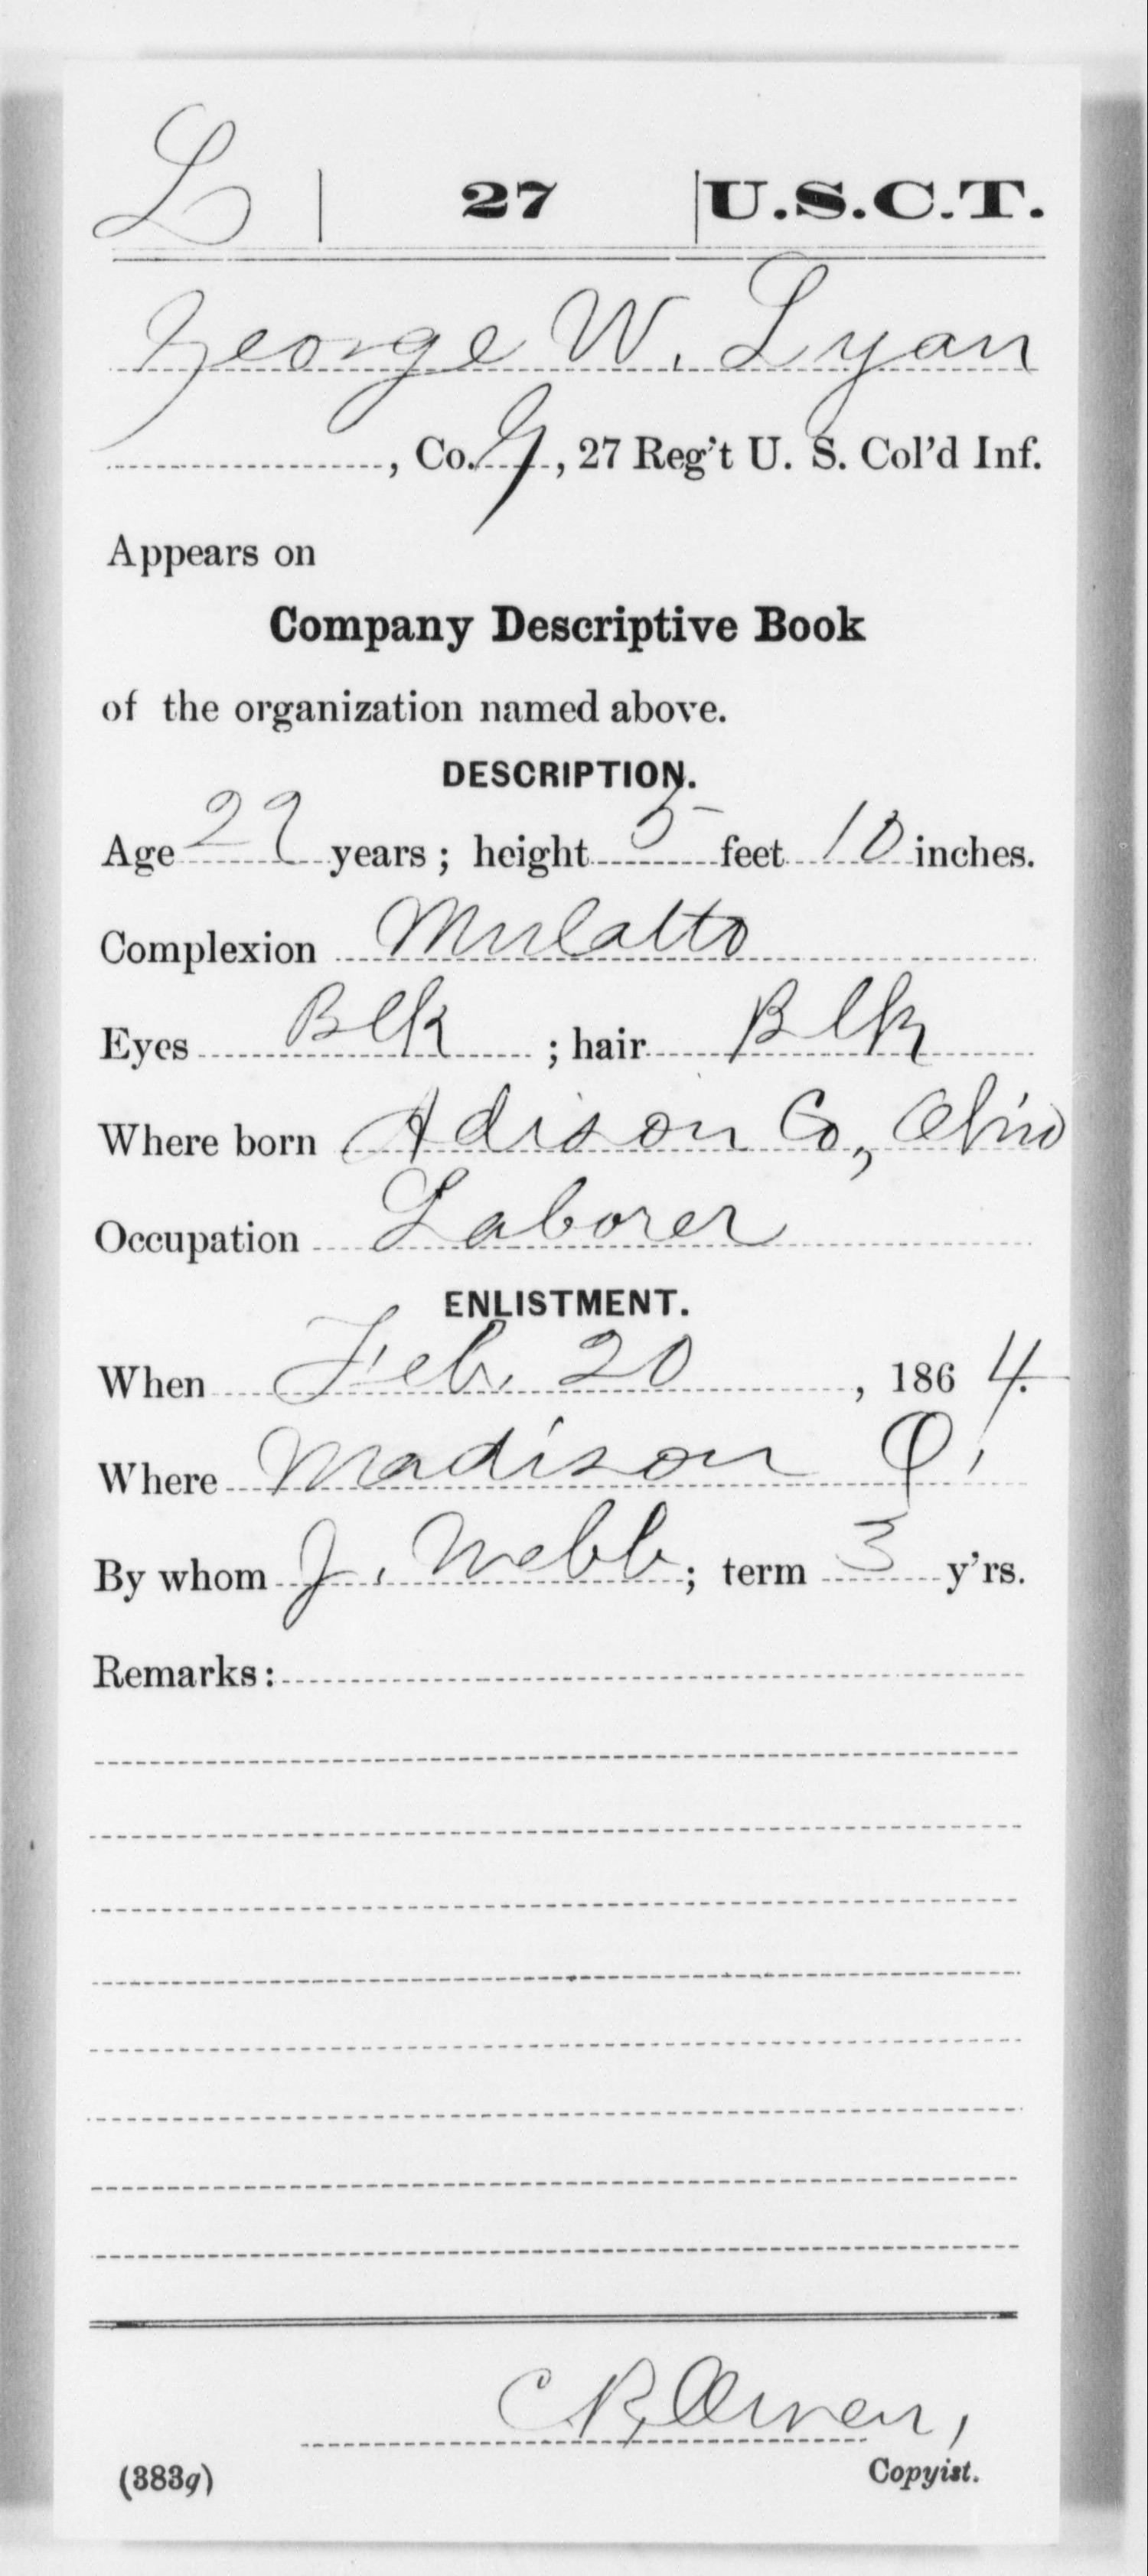 L | 27 | U.S.C.T.
George W. Lyan
, Co. G, 27 Reg't U. S. Col'd Inf.
Appears on
Company Descriptive Book
of the organization named above.
DESCRIPTION.
Age 22 years; height 5 feet 10 inches.
Complexion Mulatto
Eyes Blk ; hair Blk
Where born Adison Co., Ohio
Occupation Laborer
ENLISTMENT.
When Feb. 20, 1864.
Where Madison O.
By whom J. Webb; term 3 y'rs.
Remarks:
C R Owen,
(383g) Copyist.